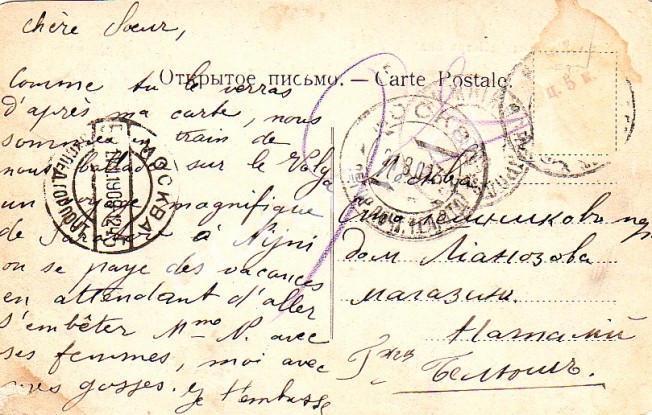 Chère Soeur,
Открытое письмо. — Carte Postale.
Comme tu le verras
d'après ma carte, nous
sommes en train de
nous ballader sur le Volga
un voyage magnifique
de à Nijni
on se paye des vacances
en attendant d'aller
s'embêter Mme N. avec
ses femmes, moi avec
mes gosses. Je t'embrasse
МОСКВА
МОСКВА
Москва
пер
дом Лианозова
магазин
Наталий
Гжев
Белюшъ.
д. 5 к.